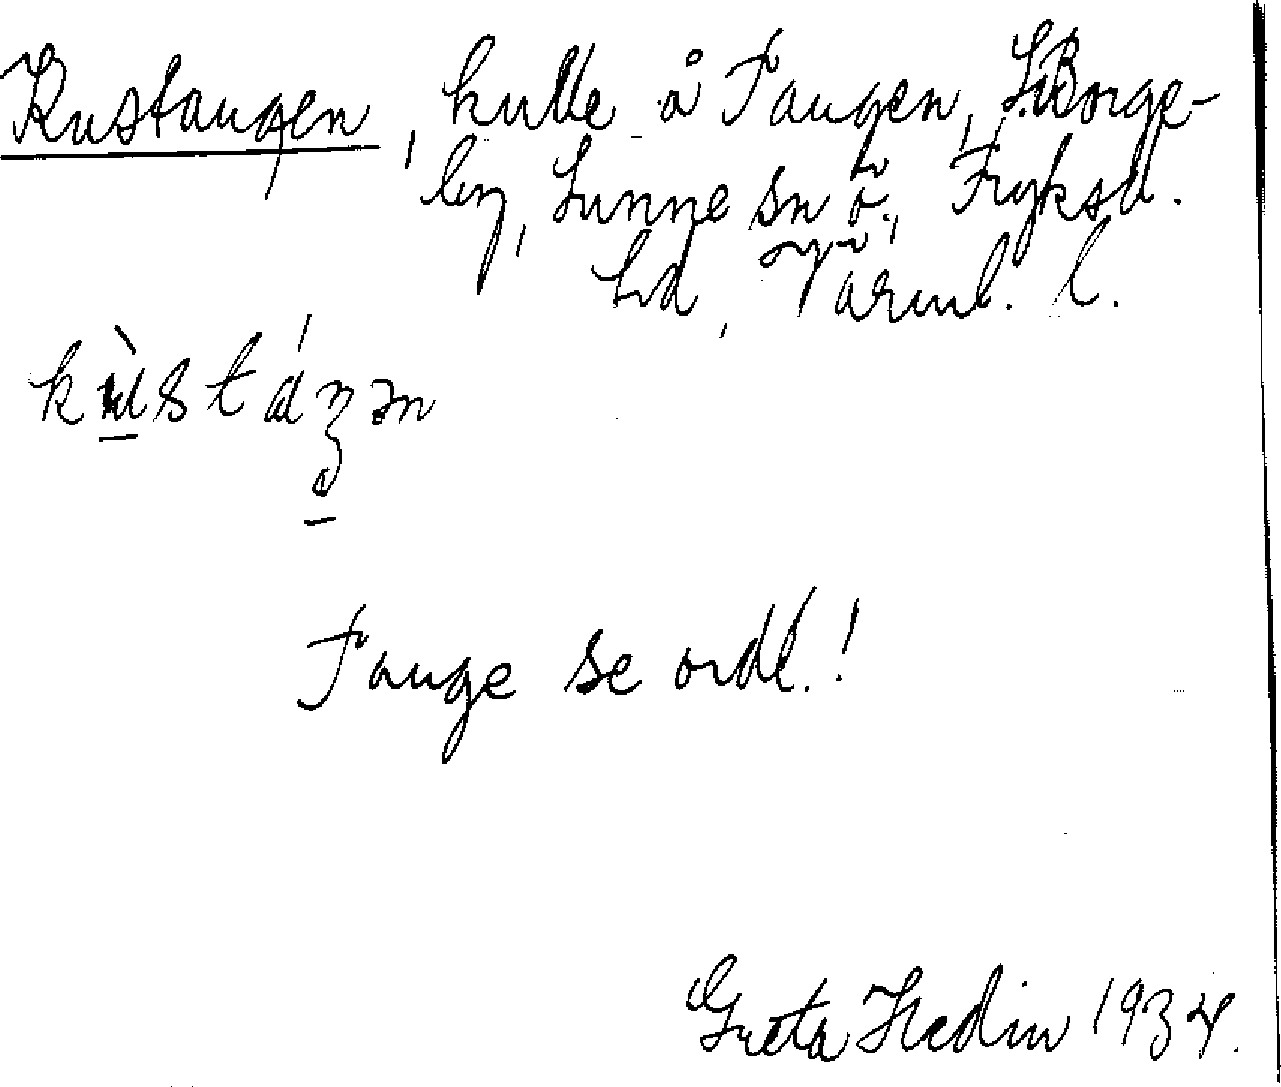 Kustangen, kulle å Tangen, St. Borge-
by, Sunne sn ö., Fryksd.
hd, Värml. l.
Tange se ordl.!
Greta Hedin 1934.